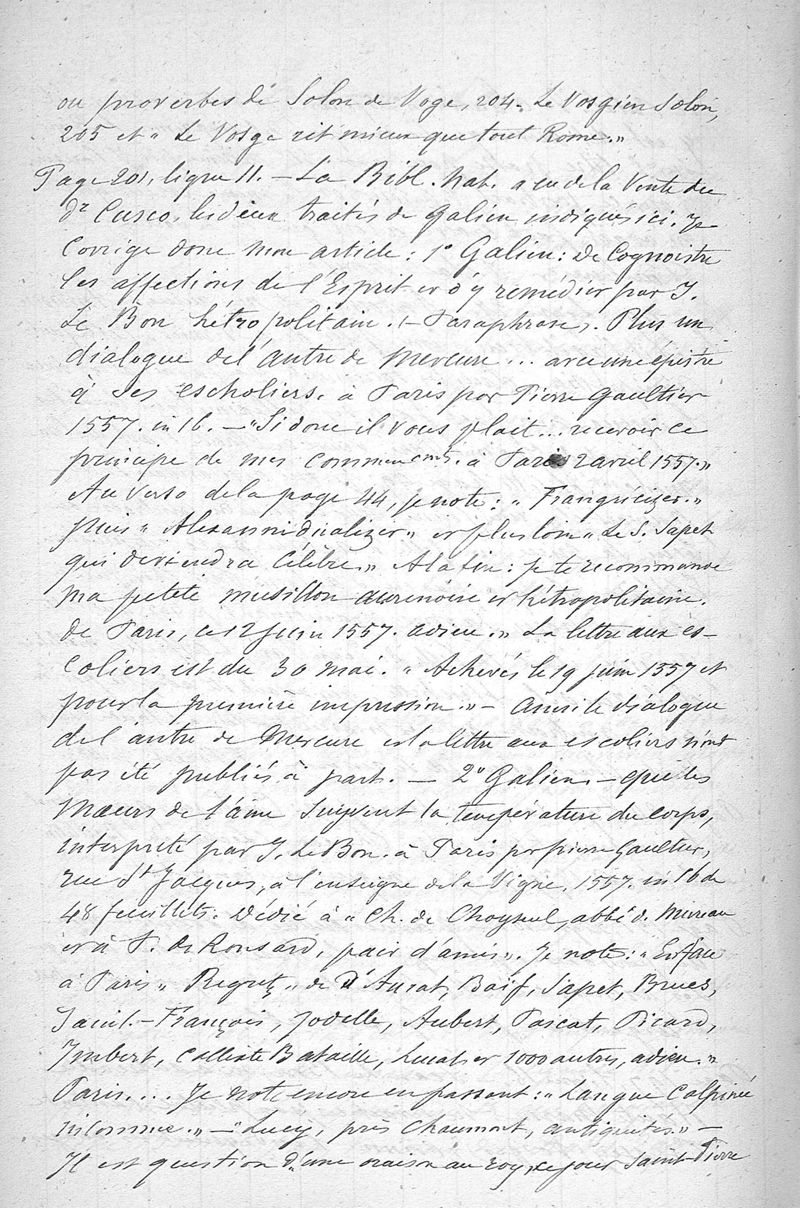 ou proverbes de Solon de Voge, 204. Le Vosgien Solon,
205 et « Le Vosge rit mieux que tout Rome. »
Page 201, ligne 11. — La Bibl. Nat. a eu de la Vente du
dr Cusco, les deux traités de Galien indiqués ici. Je
corrige donc mon article : 1° Galien : de Cognoistre
les affections de l'Esprit et d'y remédier par J.
Le Bon hétropolitain. (— Paraphrase). Plus un
dialogue de l'antre de Mercure ... avec une épistre
à ses escholiers. à Paris par Pierre Gaultier
1557. in 16. — « Si donc il vous plait ... recevoir ce
principe de mes commencemts. à Paris 2 avril 1557. »
Au verso de la page 44, je note : « Franquécizer. »
puis « Alexandrializer » et plus loin « Le S. Sapet
qui deviendra célèbre. » A la fin : je te recommande
ma petite musillon aurenoise et hétropolitaine.
de Paris, ce 12 juin 1557. adieu. » La lettre aux es-
coliers est du 30 mai. « Achevés le 19 juin 1557 et
pour la première impression. » — Ainsi le dialogue
de l'antre de Mercure et la lettre aux escoliers n'ont
pas été publiés à part. — 2° Galien, — que les
Mœurs de l'âme suyvent la température du corps,
interprété par J. Le Bon. à Paris par pierre Gaultier,
rue St Jacques, à l'enseigne de la Vigne, 1557. in 16 de
48 feuillets. Dédié à « Ch. de Choyseul, abbé d. Mureau
et à P. de Ronsard, pair d'amis ». Je note : « En face
à Paris » de D'Aurat, Baïf, Sapet, Brues,
Saint-François, Jodelle, Aubert, Pascat, Picard,
Imbert, Calliste Bataille, Lucat et 1000 autres, adieu. »
Paris.... Je note encore en passant : « Langue Calpinée
incomme. » — « Lucy, près Chaumont, antiquités. » —
Il est question d'une oraison au roy, ce jour Saint-Pierre